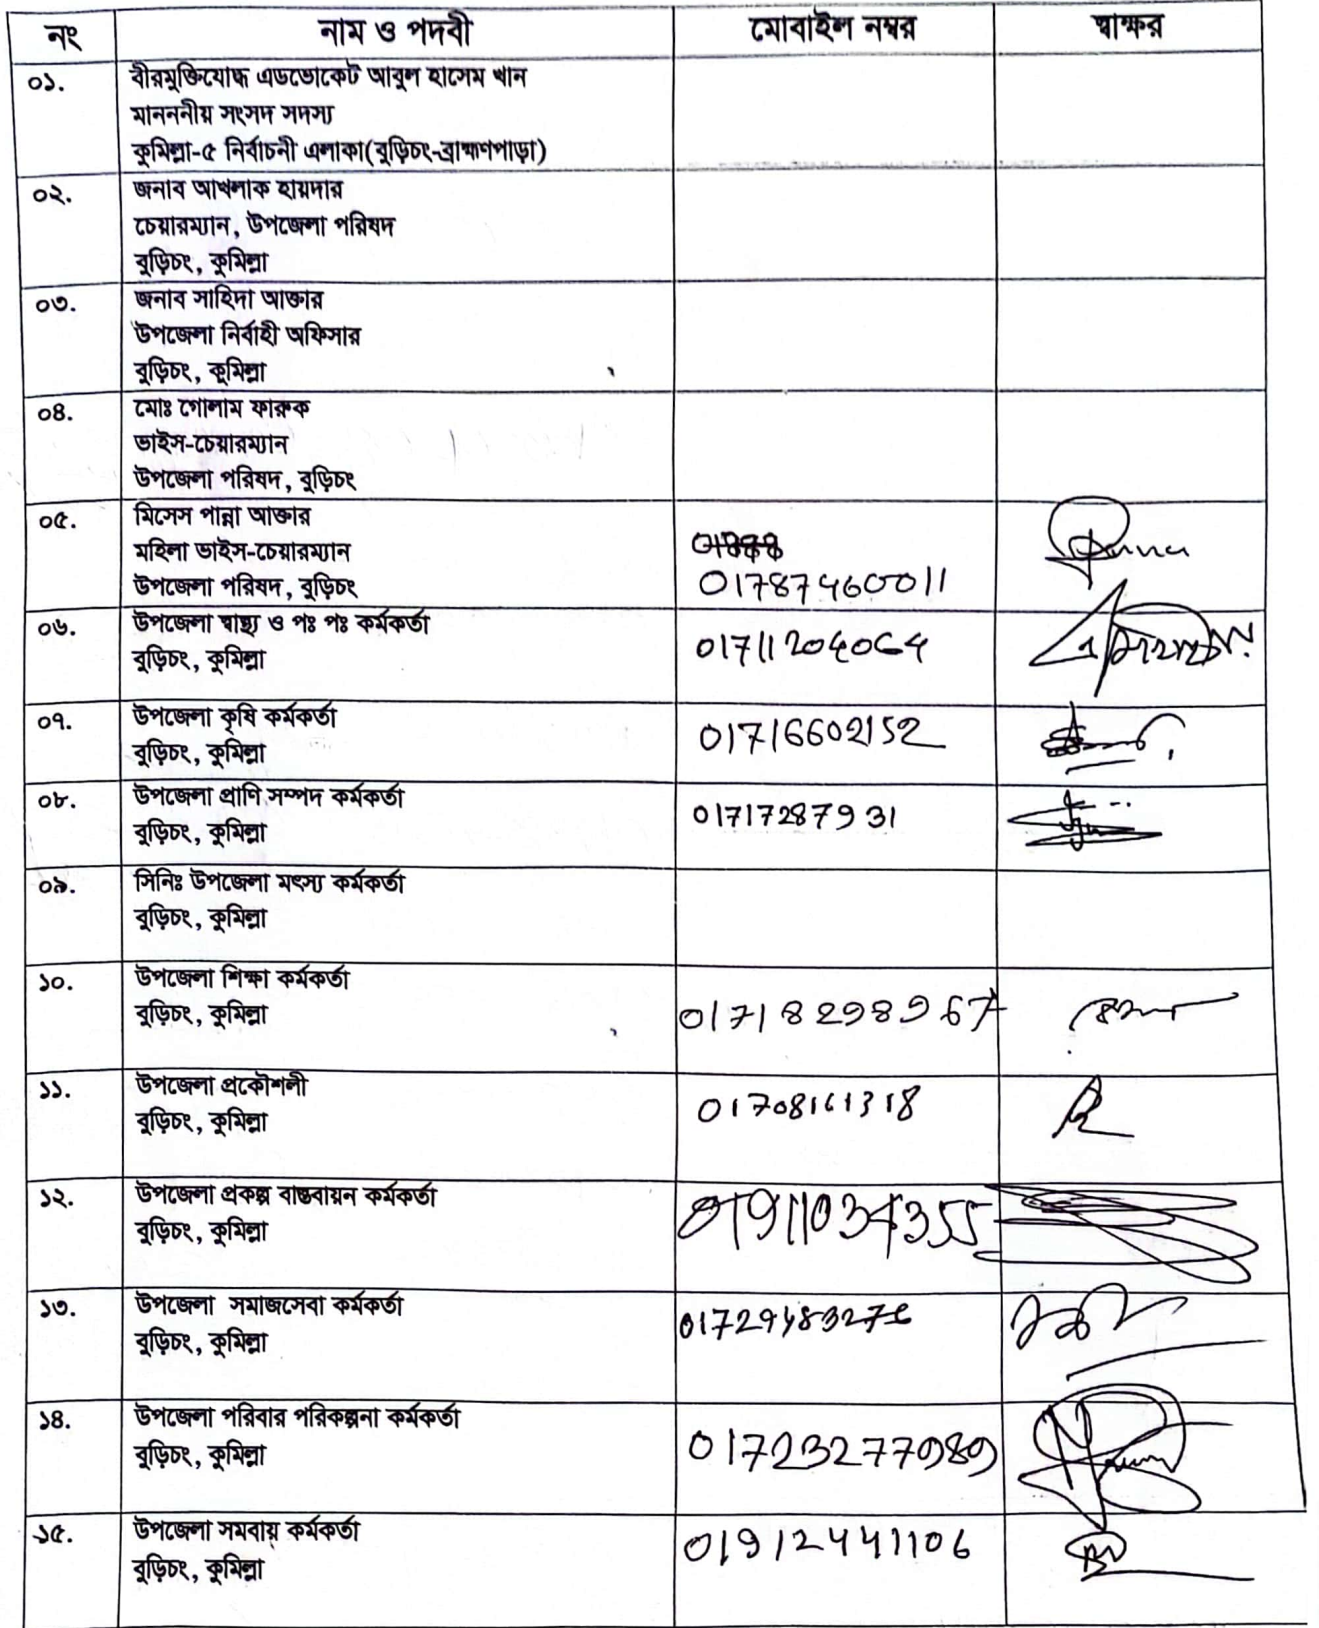 নং নাম ও পদবী মোবাইল নম্বর স্বাক্ষর
০১. বীরমুক্তিযোদ্ধ এডভোকেট আবুল হাসেম খান
মানননীয় সংসদ সদস্য
কুমিল্লা-৫ নির্বাচনী এলাকা(বুড়িচং-ব্রাহ্মণপাড়া)
০২. জনাব আখলাক হায়দার
চেয়ারম্যান, উপজেলা পরিষদ
বুড়িচং, কুমিল্লা
০৩. জনাব সাহিদা আক্তার
উপজেলা নির্বাহী অফিসার
বুড়িচং, কুমিল্লা
০৪. মোঃ গোলাম ফারুক
ভাইস-চেয়ারম্যান
উপজেলা পরিষদ, বুড়িচং
০৫. মিসেস পান্না আক্তার
মহিলা ভাইস-চেয়ারম্যান
উপজেলা পরিষদ, বুড়িচং 01787460011
০৬. উপজেলা স্বাস্থ্য ও পঃ পঃ কর্মকর্তা
বুড়িচং, কুমিল্লা
০৭. উপজেলা কৃষি কর্মকর্তা
বুড়িচং, কুমিল্লা 01716602152
০৮. উপজেলা প্রাণি সম্পদ কর্মকর্তা
বুড়িচং, কুমিল্লা 01717287931
০৯. সিনিঃ উপজেলা মৎস্য কর্মকর্তা
বুড়িচং, কুমিল্লা
১০. উপজেলা শিক্ষা কর্মকর্তা
বুড়িচং, কুমিল্লা 01718298967
১১. উপজেলা প্রকৌশলী
বুড়িচং, কুমিল্লা 01708161318
১২. উপজেলা প্রকল্প বাস্তবায়ন কর্মকর্তা
বুড়িচং, কুমিল্লা 01911034355
১৩. উপজেলা সমাজসেবা কর্মকর্তা
বুড়িচং, কুমিল্লা
১৪. উপজেলা পরিবার পরিকল্পনা কর্মকর্তা
বুড়িচং, কুমিল্লা 01723277989
১৫. উপজেলা সমবায় কর্মকর্তা
বুড়িচং, কুমিল্লা 01912441106